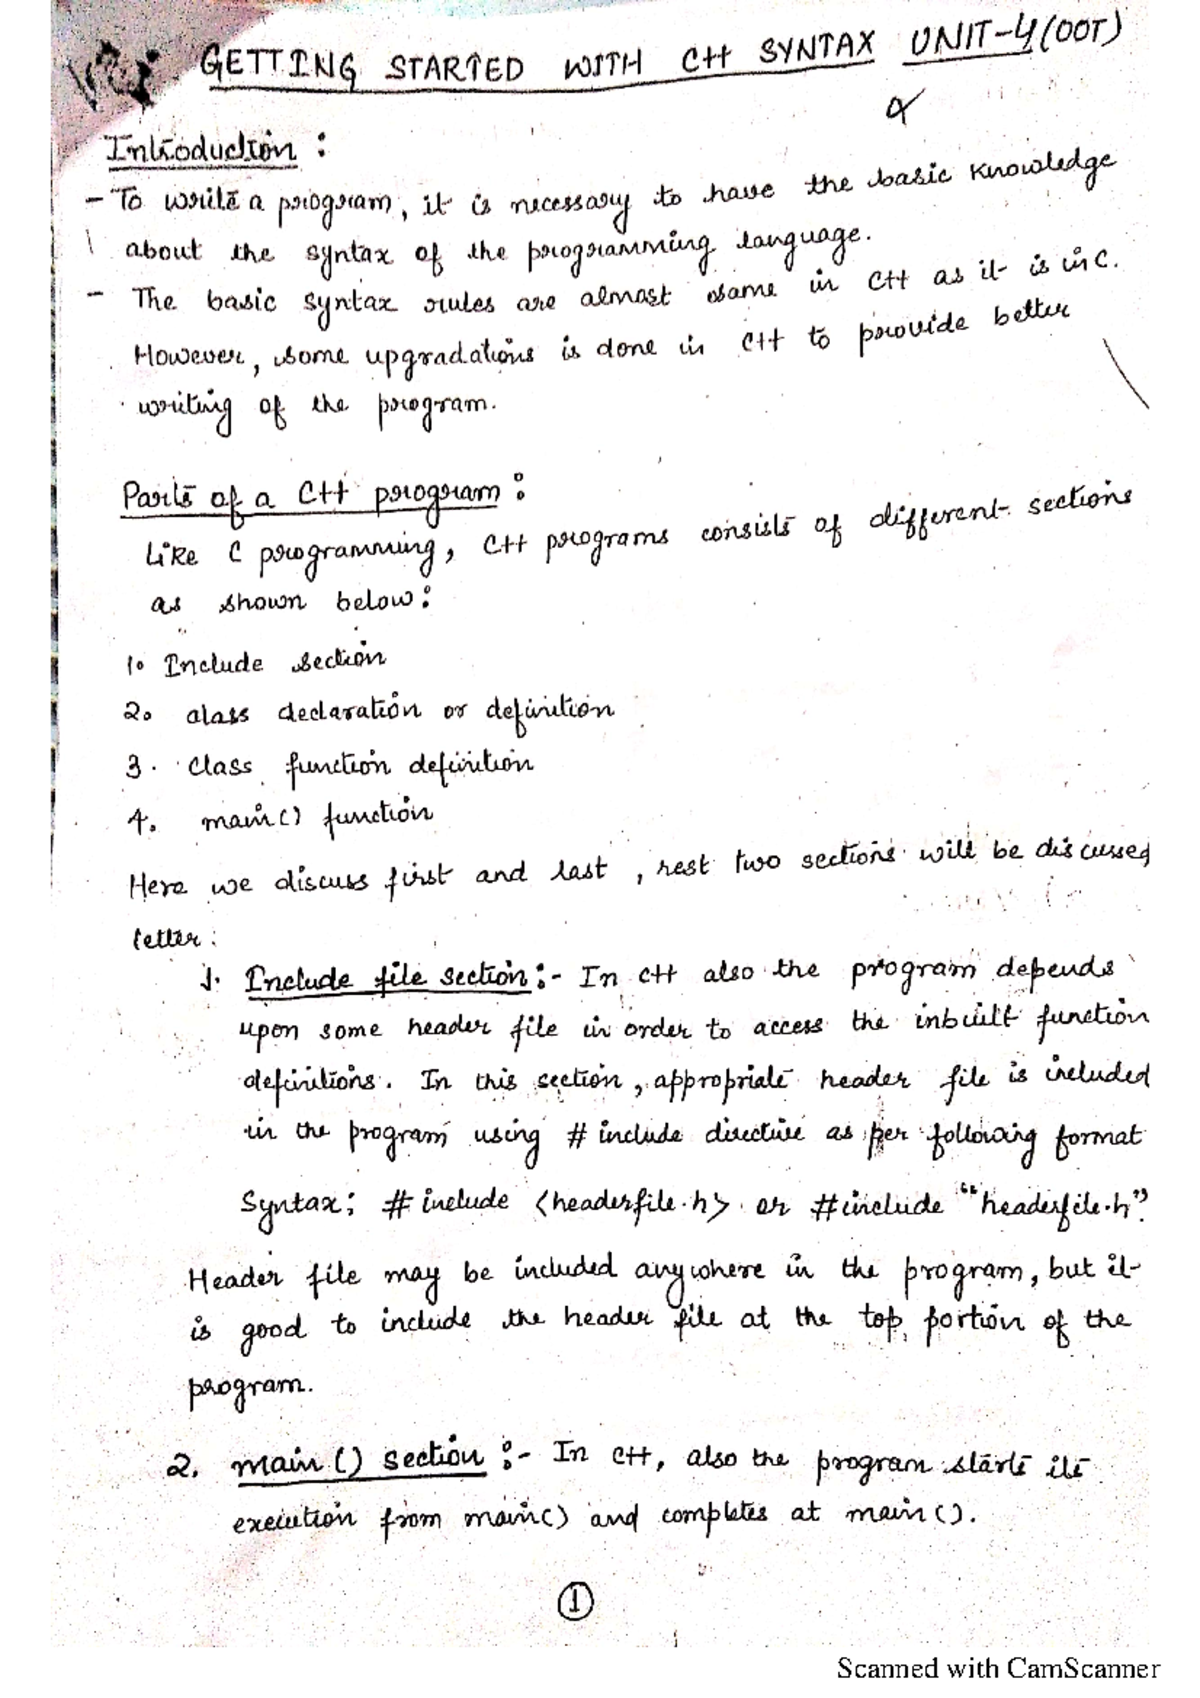 GETTING STARTED WITH C++ SYNTAX UNIT-4(OOT)
Introduction :
- To write a program, it is necessary to have the basic knowledge
about the syntax of the programming language.
- The basic syntax rules are almost same in C++ as it is in C.
However, some upgradations is done in C++ to provide better
writing of the program.
Parts of a C++ program :
Like C programming, C++ programs consists of different sections
as shown below:
1. Include section
2. alass declaration or definition
3. Class function definition
4. main() function
Here we discuss first and last, rest two sections will be discussed
letter.
1. Include file section :- In C++ also the program depends
upon some header file in order to access the inbuilt function
definitions. In this section, appropriate header file is included
in the program using # include directive as per following format
Syntax: # include <headerfile.h> or #include "headerfile.h".
Header file may be included anywhere in the program, but it
is good to include the header file at the top portion of the
program.
2. main () section :- In C++, also the program starts its
execution from main() and completes at main().
1
Scanned with CamScanner